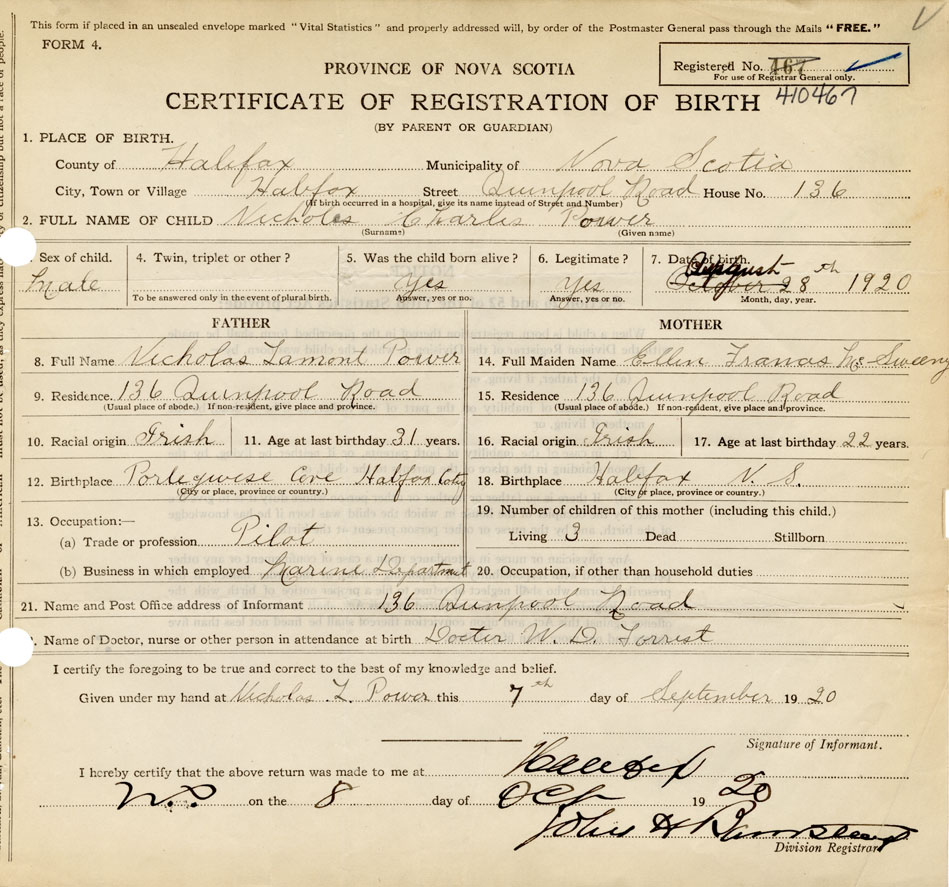 This form if placed in an unsealed envelope marked "Vital Statistics" and properly addressed will, by order of the Postmaster General pass through the Mails "FREE."
FORM 4.
Registered No. 467
For use of Registrar General only.
410467
PROVINCE OF NOVA SCOTIA
CERTIFICATE OF REGISTRATION OF BIRTH
(BY PARENT OR GUARDIAN)
1. PLACE OF BIRTH.
County of Halifax Municipality of Nova Scotia
City, Town or Village Halifax Street Quinpool Road House No. 136
(If birth occurred in a hospital, give its name instead of Street and Number)
2. FULL NAME OF CHILD Nicholas Charles Power
(Surname) (Given name)
Sex of child. 4. Twin, triplet or other? 5. Was the child born alive? 6. Legitimate? 7. Date of birth.
August
Male Yes Yes October 28th 1920
To be answered only in the event of plural birth. Answer, yes or no. Answer, yes or no. Month, day, year.
FATHER MOTHER
8. Full Name Nicholas Lamont Power 14. Full Maiden Name Ellen Francis Mc Sweeny
9. Residence. 136 Quinpool Road 15. Residence 136 Quinpool Road
(Usual place of abode.) If non-resident, give place and province. (Usual place of abode.) If non-resident, give place and province.
10. Racial origin Irish 11. Age at last birthday 31 years. 16. Racial origin Irish 17. Age at last birthday 22 years.
12. Birthplace Portugwise Cove Halifax 18. Birthplace Halifax N. S.
(City or place, province or country.) (City or place, province or country.)
13. Occupation:— 19. Number of children of this mother (including this child.)
(a) Trade or profession Pilot Living 3 Dead Stillborn
(b) Business in which employed Marine Department 20. Occupation, if other than household duties
21. Name and Post Office address of Informant 136 Quinpool Road
Name of Doctor, nurse or other person in attendance at birth Docter W. D. Forrest
I certify the foregoing to be true and correct to the best of my knowledge and belief.
Given under my hand at Nicholas L. Power this 7th day of September 1920
Signature of Informant.
I hereby certify that the above return was made to me at Halifax
N.S. on the 8 day of Oct 1920
John H
Division Registrar